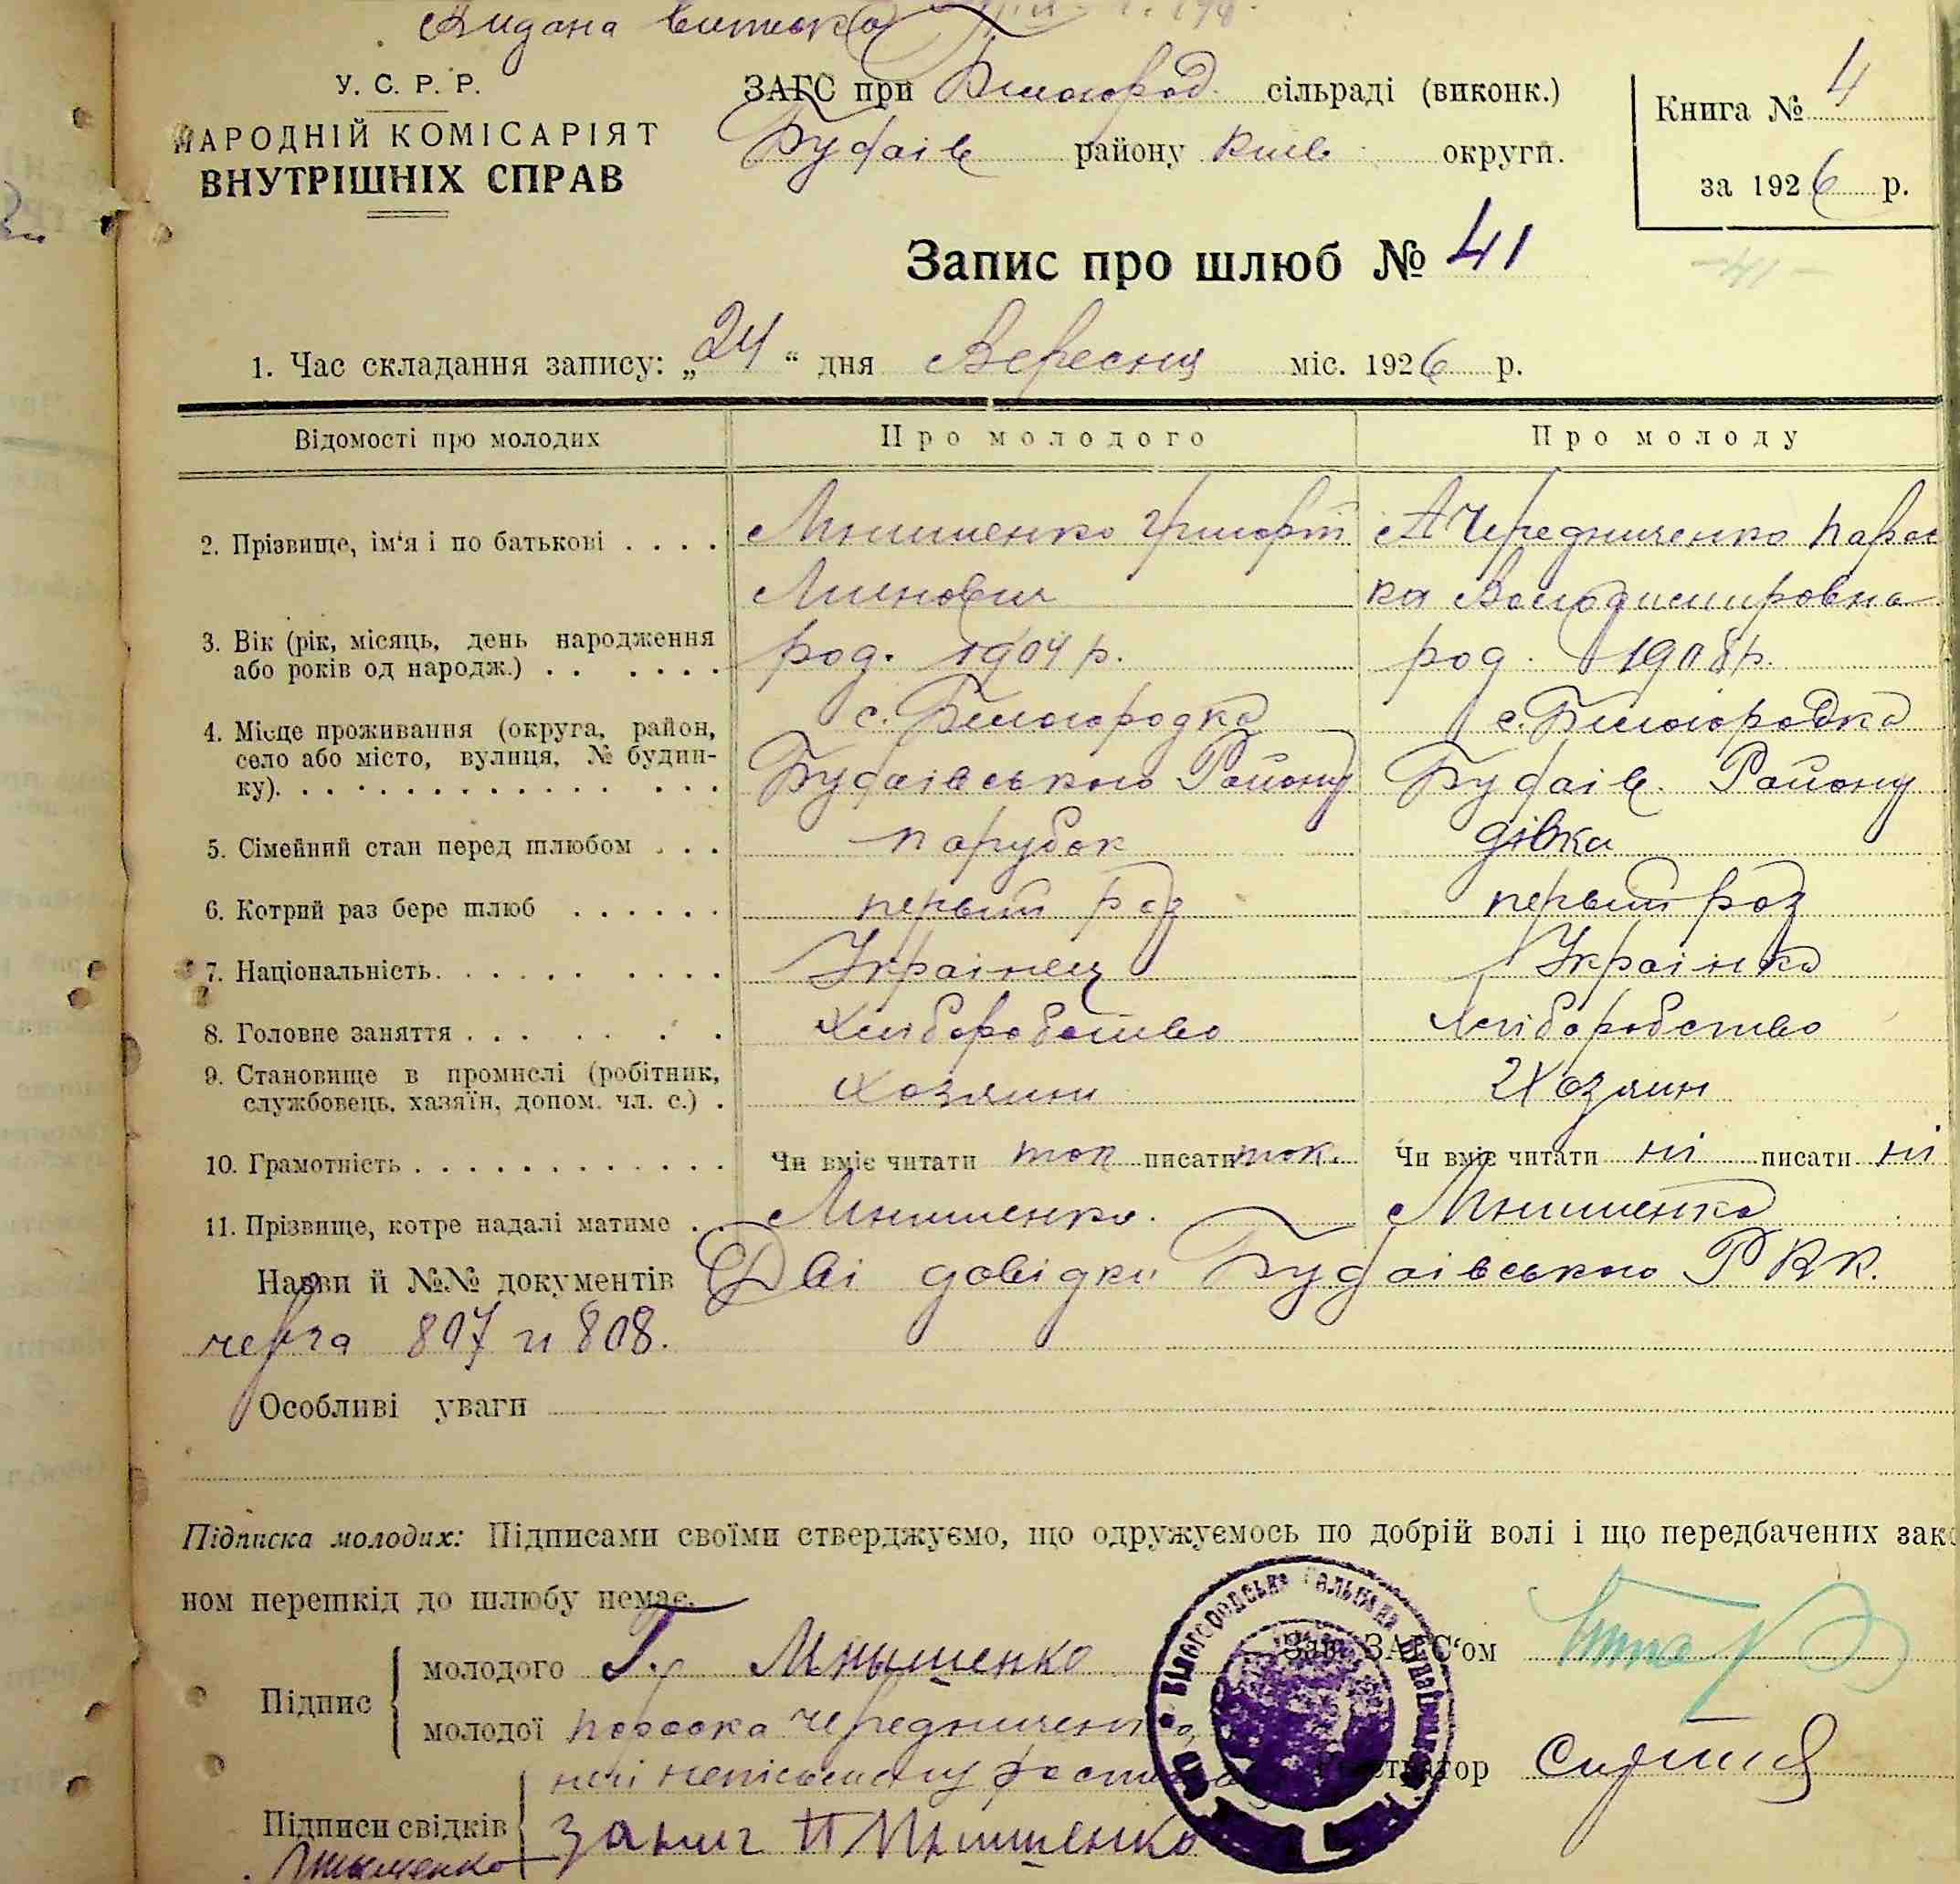 Видана
У. С. Р. Р.
НАРОДНІЙ КОМІСАРІЯТ
ВНУТРІШНІХ СПРАВ
ЗАГС при Білогород. сільраді (виконк.)
Будаів району Київ округи.
Книга № 4
за 1926 р.
Запис про шлюб № 41
1. Час складання запису: „24“ дня Вересня міс. 1926 р.
Відомості про молодих
Про молодого
Про молоду
2. Прізвище, ім'я і по батькові . . . .
Мнишенко Григорій
Чередниченко Парас
Минович
ка Володимировна
3. Вік (рік, місяць, день народження
або років од народж.) . . . . . .
род. 1904 р.
род. 1908 р.
4. Місце проживання (округа, район,
село або місто, вулиця, № будин-
ку). . . . . . . . . . . . . . . . .
с. Білогородка
с. Білогородка
Будаівського Району
Будаів. Району
5. Сімейний стан перед шлюбом . . .
парубок
дівка
6. Котрий раз бере шлюб . . . . . .
первий раз
первий раз
7. Національність. . . . . . . . . .
Українец
Українка
8. Головне заняття . . . . . . .
Хліборобство
Хліборобство
9. Становище в промислі (робітник,
службовець, хазяїн, допом. чл. с.) .
Хозяин
Хозяин
10. Грамотність . . . . . . . . . . . . .
Чи вміє читати так писати так.
Чи вміє читати ні писати ні
11. Прізвище, котре надалі матиме . .
Мнишенко.
Мнишенко
Назви й №№ документів Дві довідки Будаівського РВК.
807 и 808.
Особливі уваги
Підписка молодих: Підписами своїми стверджуємо, що одружуємось по добрій волі і що передбачених зако
ном перешкід до шлюбу немає.
Підпис
молодого Гр Мнышенко
молодої Параска Чередниченко,
Зав. ЗАГС'ом
Реєстратор
Підписи свідків
П Мнишенко